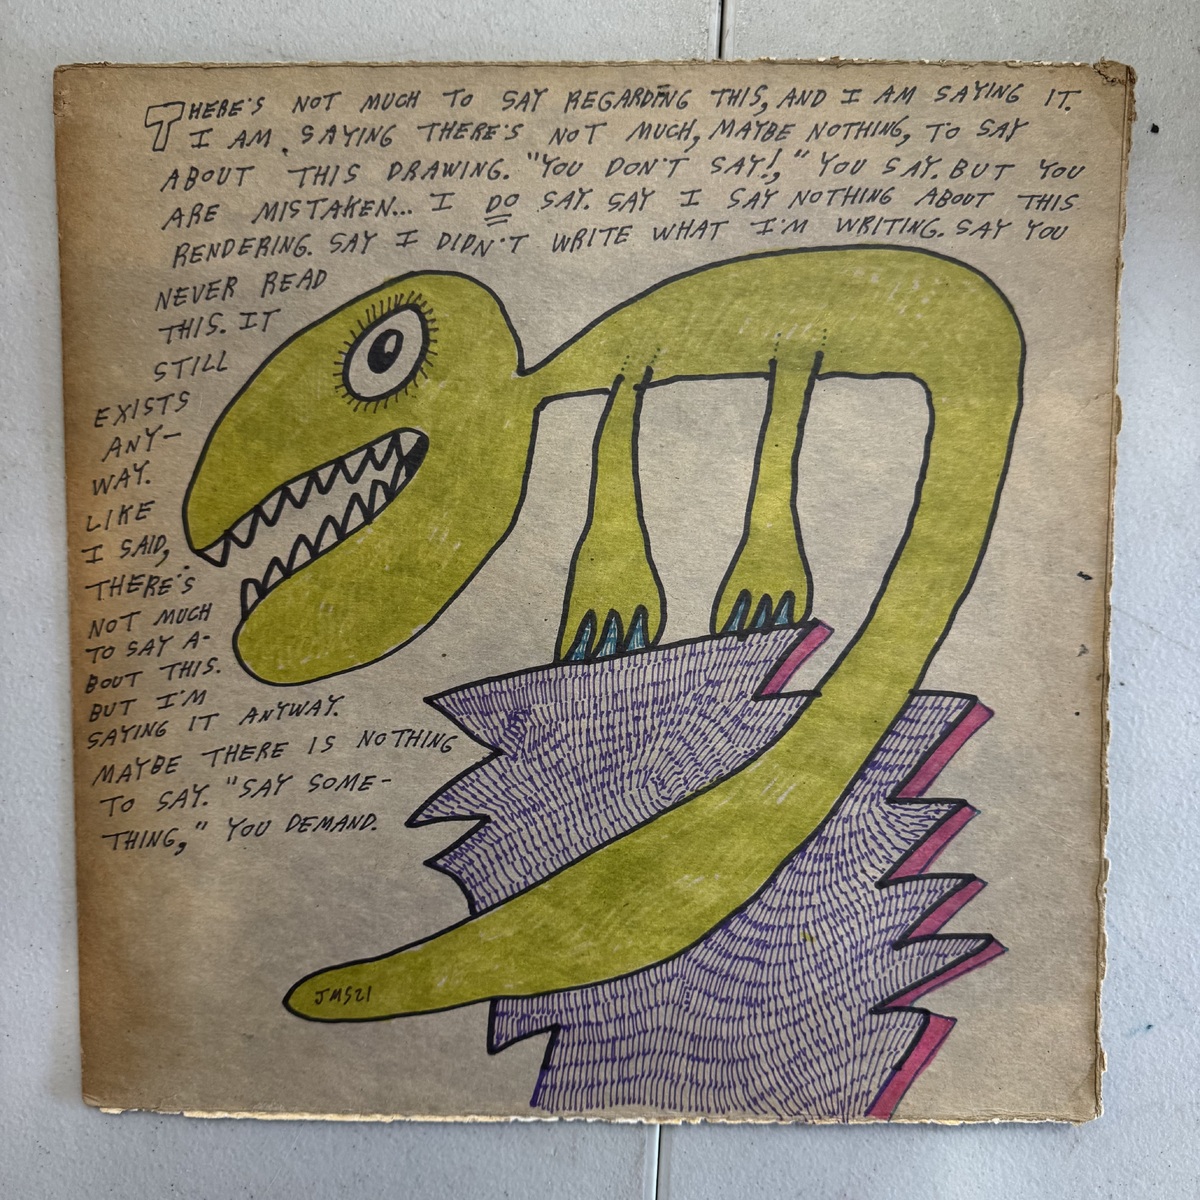 THERE'S NOT MUCH TO SAY REGARDING THIS, AND I AM SAYING IT.
I AM SAYING THERE'S NOT MUCH, MAYBE NOTHING, TO SAY
ABOUT THIS DRAWING. "YOU DON'T SAY!," YOU SAY. BUT YOU
ARE MISTAKEN... I DO SAY. SAY I SAY NOTHING ABOUT THIS
RENDERING. SAY I DIDN'T WRITE WHAT I'M WRITING. SAY YOU
NEVER READ
THIS. IT
STILL
EXISTS
ANY-
WAY.
LIKE
I SAID,
THERE'S
NOT MUCH
TO SAY A-
BOUT THIS.
BUT I'M
SAYING IT ANYWAY.
MAYBE THERE IS NOTHING
TO SAY. "SAY SOME-
THING," YOU DEMAND.
JMS21